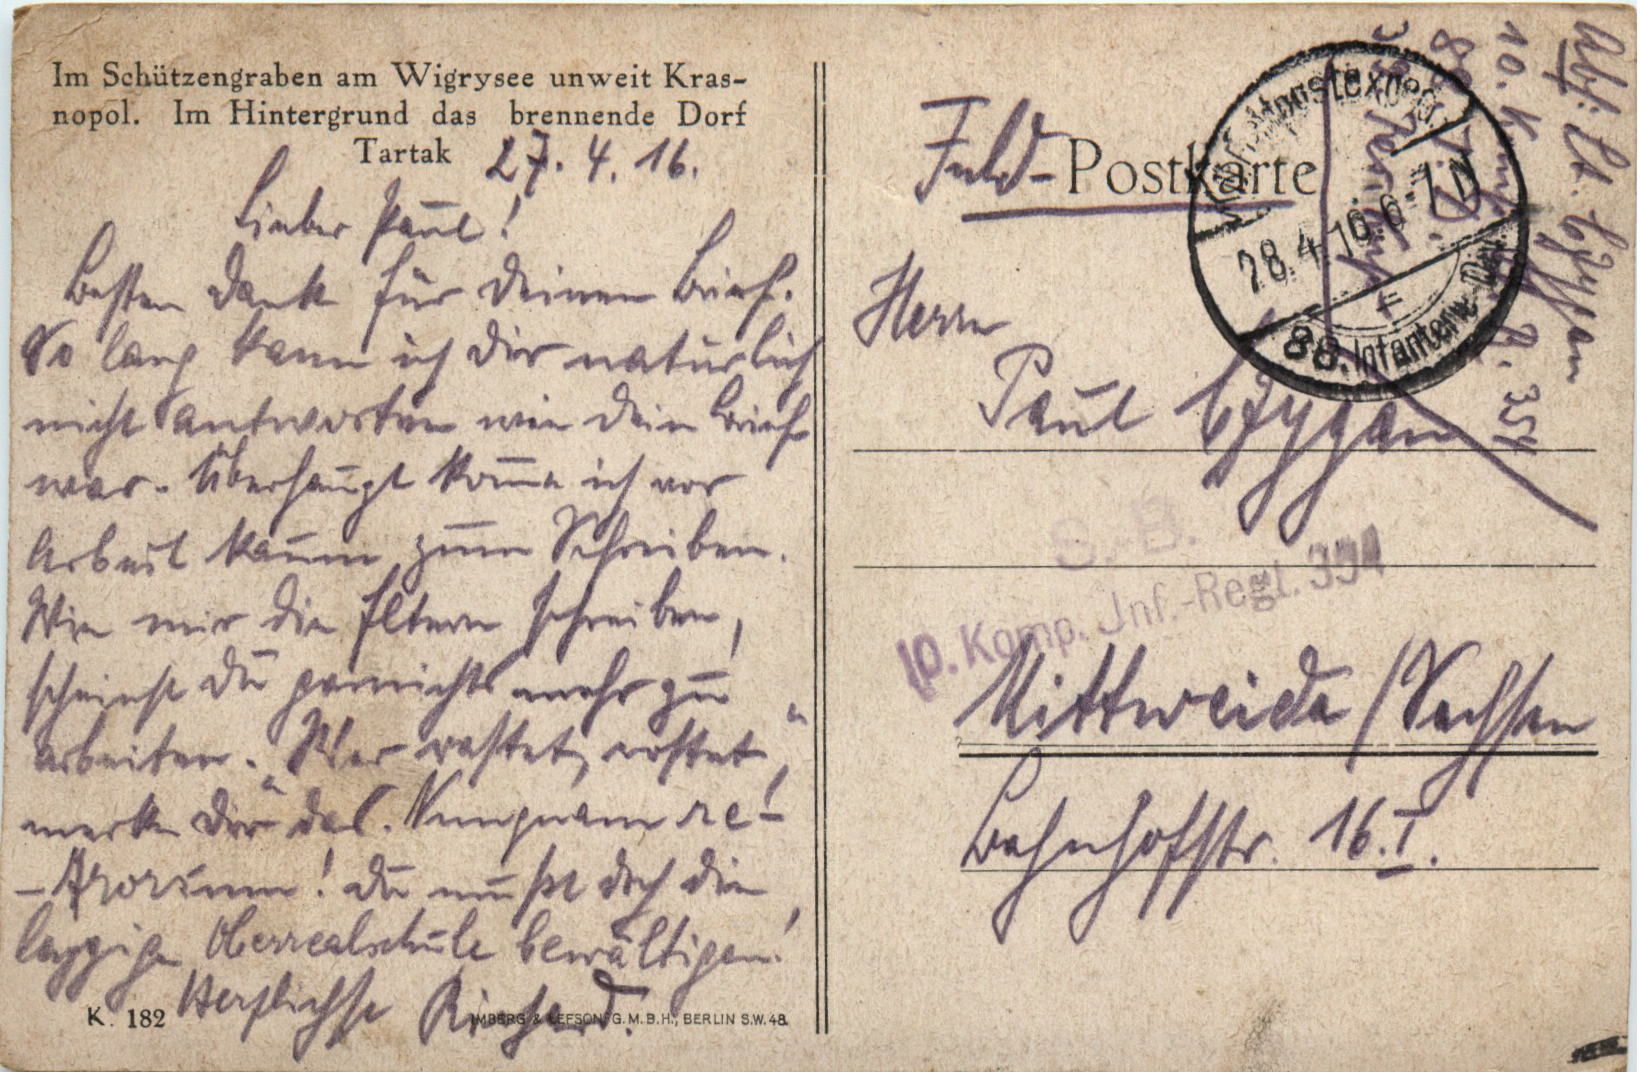 Im Schützengraben am Wigrysee unweit Kras-
nopol. Im Hintergrund das brennende Dorf
Tartak
27. 4. 16.
Lieber Paul!
Besten Dank für Deinen Brief.
So lang kann ich Dir natürlich
nicht antworten wie Dein Brief
war. Überhaupt komme ich vor
Arbeit kaum zum Schreiben.
Wie mir die Eltern schreiben,
scheinst Du garnicht mehr zu
arbeiten. „Wer rastet, rostet",
merke Dir das. Nunquam re-
-trorsum! Du mußt doch die
lappige Oberrealschule bewältigen!
Herzlichst Richard.
K. 182
IMBERG & LEFSON G.M.B.H., BERLIN S.W. 48.
Feld-Postkarte
Herrn
Paul Czygan
Mittweida / Sachsen
Bahnhofstr. 16.I.
S.-B.
10. Komp. Inf.-Regt. 354
28.4.16.6-7 N
88. Infanterie-Div.
Abs: Lt. Czygan
10. K. Inf. R. 354